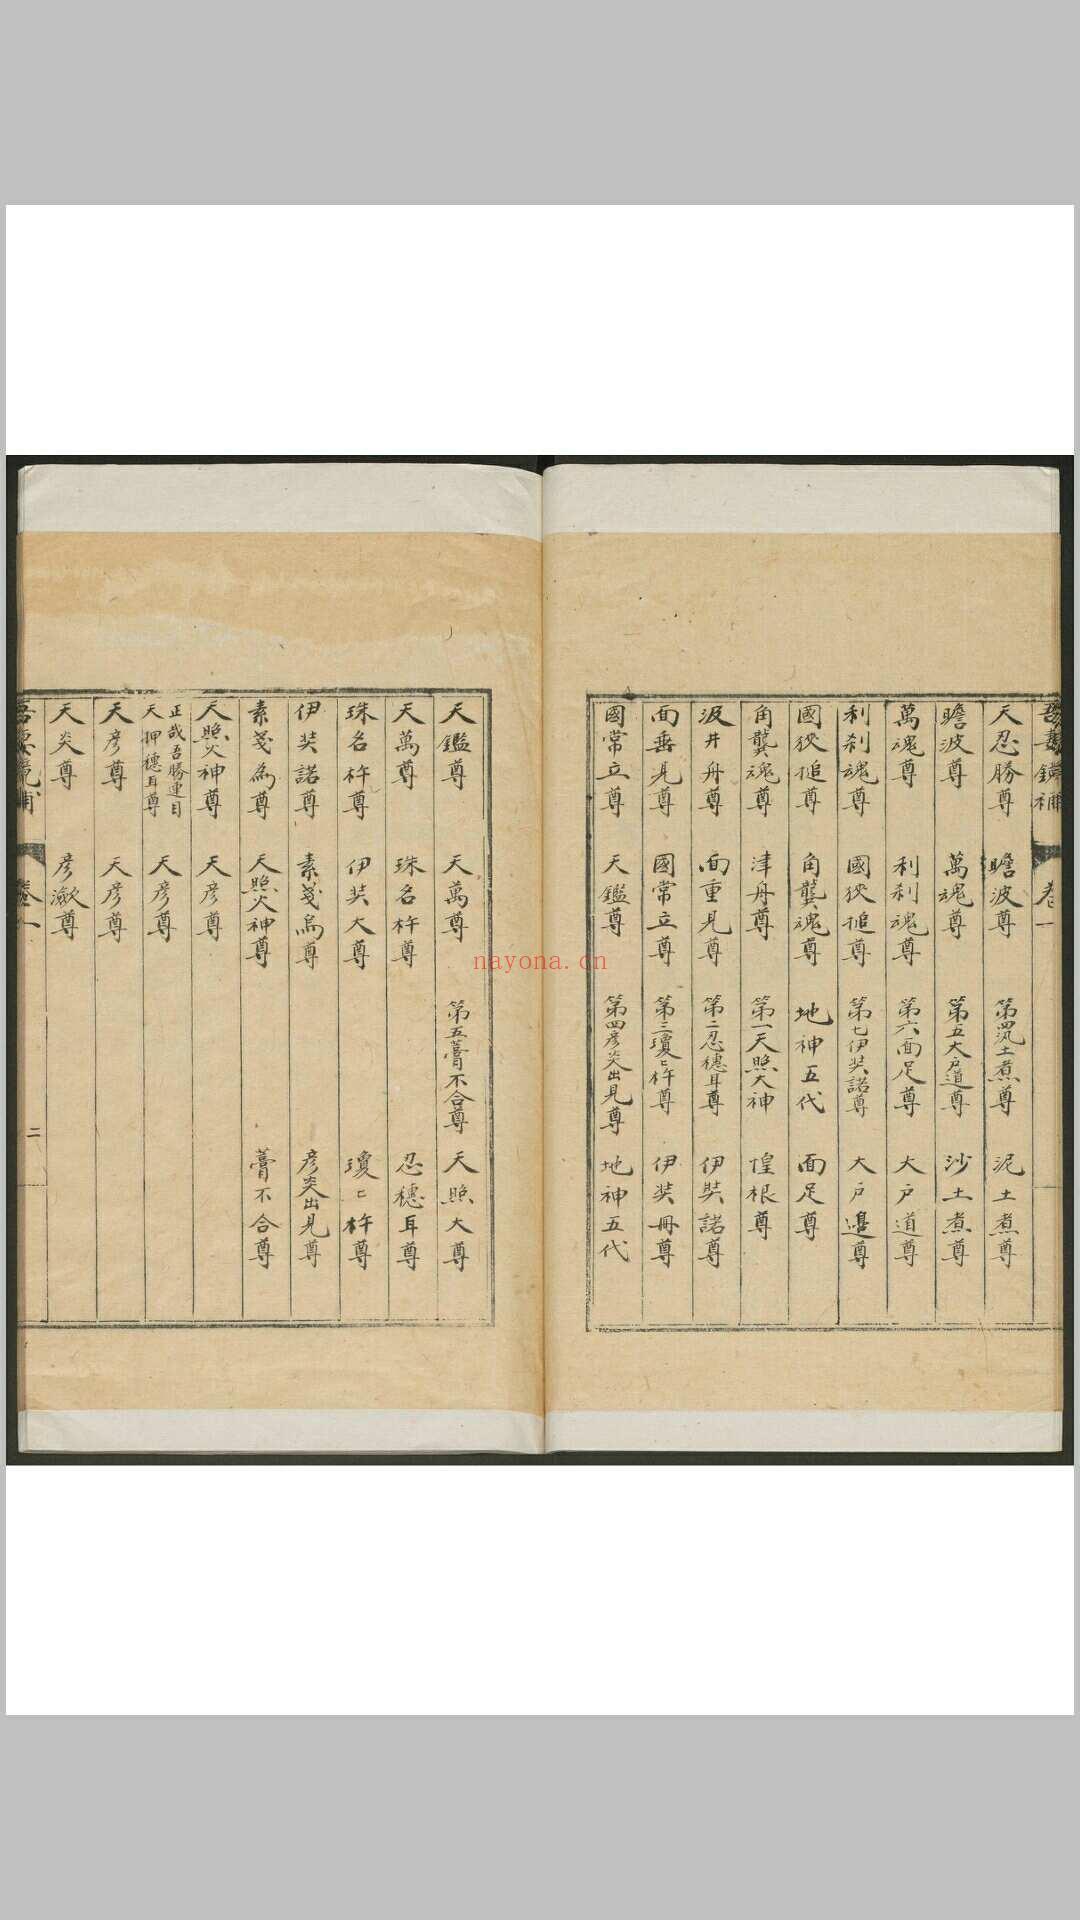 吾妻鏡補 卷一
天忍勝尊 瞻波尊 第四泥土煮尊 泥土煮尊
瞻波尊 萬魂尊 第五大戶道尊 沙土煮尊
萬魂尊 利刹魂尊 第六面足尊 大戶道尊
利刹魂尊 國狹槌尊 第七伊奘諾尊 大戶邉尊
國狹槌尊 角龔魂尊 地神五代 面足尊
角龔魂尊 津舟尊 第一天照大神 惶根尊
汲井舟尊 面重見尊 第二忍穗耳尊 伊奘諾尊
面垂見尊 國常立尊 第三瓊〻杵尊 伊奘冊尊
國常立尊 天鑑尊 第四彥炎出見尊 地神五代
天鑑尊 天萬尊 第五葺不合尊 天照大尊
天萬尊 珠名杵尊 忍穗耳尊
珠名杵尊 伊奘大尊 瓊〻杵尊
伊奘諾尊 素戔烏尊 彥炎出見尊
素戔烏尊 天照火神尊 葺不合尊
天照火神尊 天彥尊
正哉吾勝速日天押穗耳尊 天彥尊
天彥尊 天彥尊
天炎尊 彥瀲尊
吾妻鏡補 卷一 二
nayona.cn